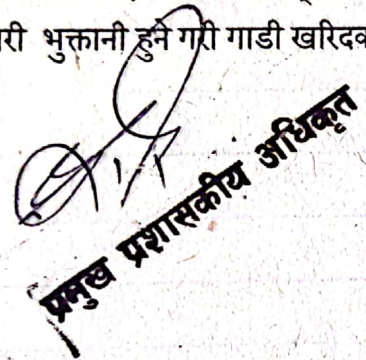 भुक्तानी हुने गरी गाडी
प्रमुख प्रशासकीय अधिकृत